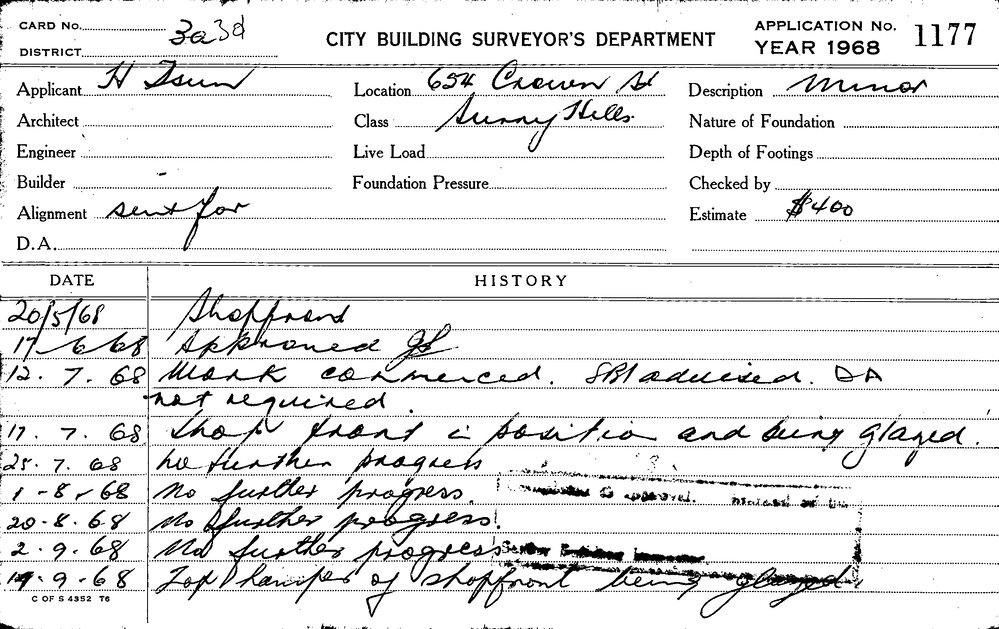 CARD No. 3a3d
DISTRICT
CITY BUILDING SURVEYOR'S DEPARTMENT
APPLICATION No. 1177
YEAR 1968
Applicant H Tsun Location 654 Crown St Description Minor
Architect Class Surry Hills Nature of Foundation
Engineer Live Load Depth of Footings
Builder Foundation Pressure Checked by
Alignment sent for Estimate $400
D.A.
DATE HISTORY
20/5/68 Shopfront
17-6-68 Approved
12.7.68 Work commenced. SBI advised. DA
not required.
17.7.68 Shop front in position and being glazed.
25.7.68 No further progress
1-8-68 No further progress.
20-8-68 No further progress.
2.9.68 No further progress
19-9-68 Top hamper of shopfront being glazed
Senior Building Inspector
C OF S 4352 76